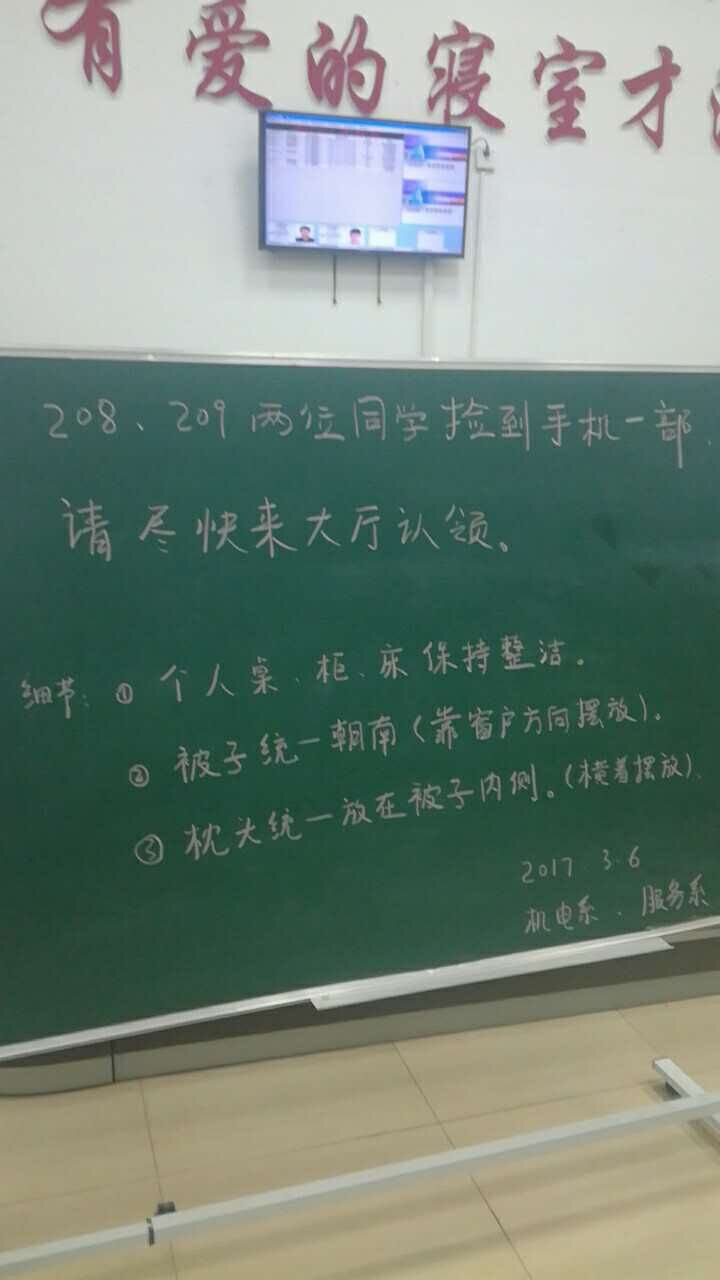 有爱的寝室才
208、209两位同学捡到手机一部,
请尽快来大厅认领。
细节:① 个人桌、柜、床保持整洁。
② 被子统一朝南(靠窗户方向摆放)。
③ 枕头统一放在被子内侧。(横着摆放).
2017 3.6
机电系、服务系